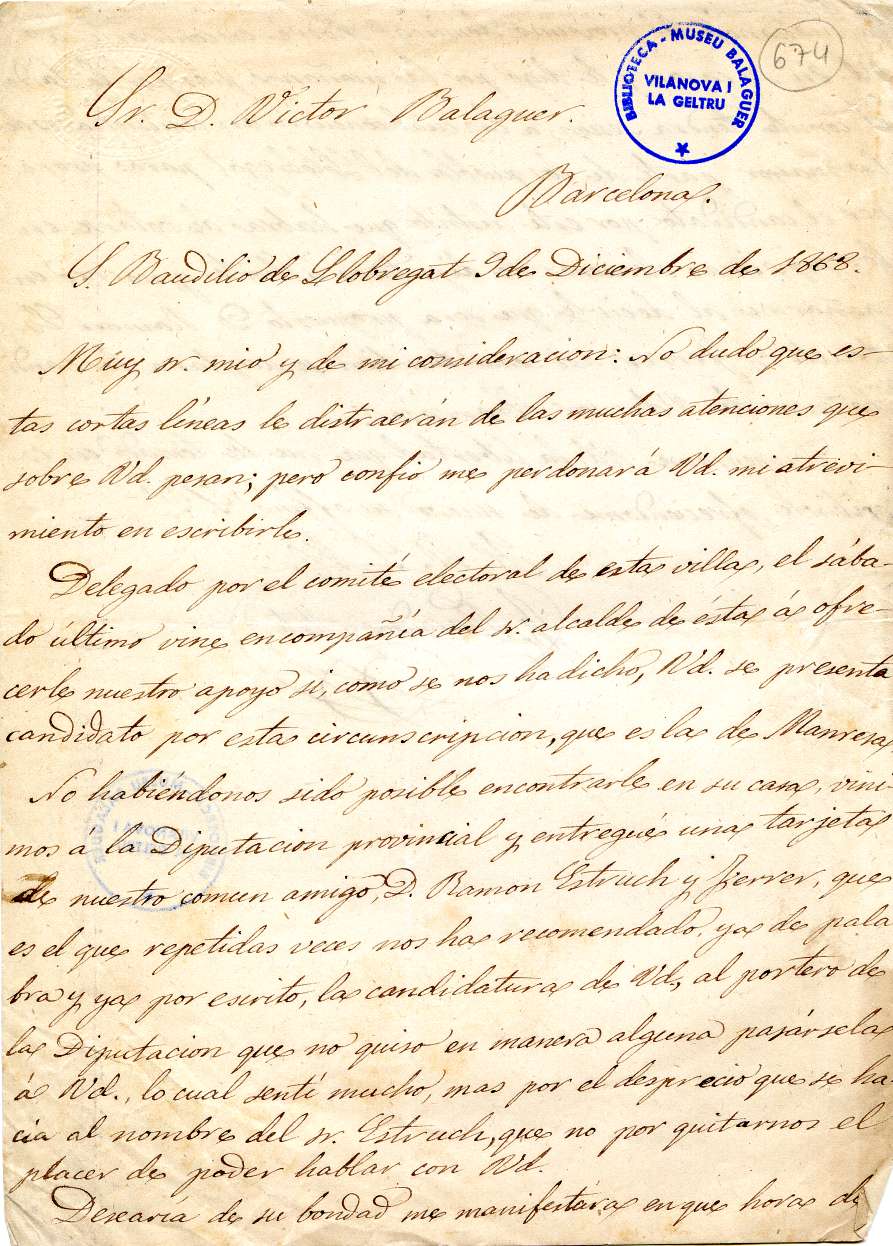 674
BIBLIOTECA - MUSEU BALAGUER
VILANOVA I
LA GELTRU
Sr. D. Victor Balaguer.
Barcelona.
S. Baudilio de Llobregat 9 de Diciembre de 1868.
Muy sr. mio y de mi consideracion: No dudo que es-
tas cortas líneas le distraerán de las muchas atenciones que
sobre Vd. pesan; pero confio me perdonará Vd. mi atrevi-
miento en escribirle.
Delegado por el comité electoral de esta villa, el sába-
do último vine en compañía del sr. alcalde de ésta á ofre-
cerle nuestro apoyo si, como se nos ha dicho, Vd. se presenta
candidato por esta circunscripcion, que es la de Manresa
No habiendonos sido posible encontrarle en su casa, vini-
mos á la Diputacion provincial y entregué una tarjeta
de nuestro comun amigo, D. Ramon Estruch y Ferrer, que
es el que repetidas veces nos ha recomendado, ya de pala
bra y ya por escrito, la candidatura de Vd., al portero de
la Diputacion que no quiso en manera alguna pasársela
á Vd., lo cual sentí mucho, mas por el desprecio que se ha-
cia al nombre del sr. Estruch, que no por quitarnos el
placer de poder hablar con Vd.
Desearía de su bondad me manifestára en que hora de